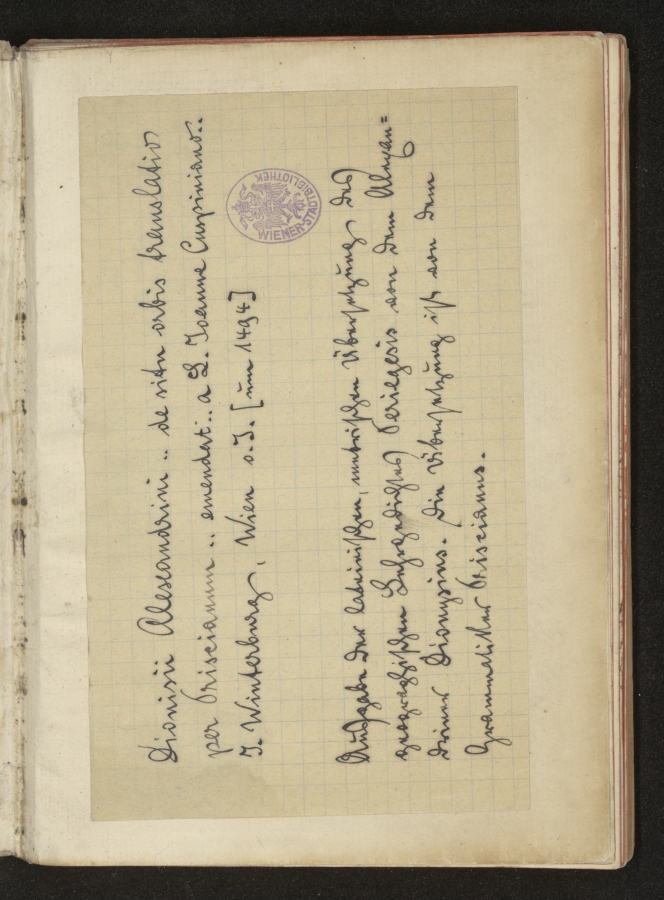 Dionisii Alexandrini .. de situ orbis translatio
per Priscianum .. emendat .. a L. Joanne Cuspiniano..
J. Winterburg, Wien o. J. [um 1494]
WIENER-STADTBIBLIOTHEK
Ausgabe der lateinischen, metrischen Übersetzung des
geographischen Lehrgedichtes Periegesis von dem Alexan=
driner Dionysius. Die Übersetzung ist von dem
Grammatiker Priscianus.